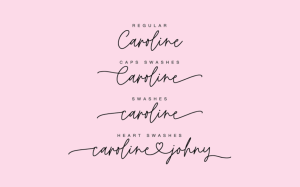 REGULAR
Caroline
CAPS SWASHES
Caroline
SWASHES
caroline
HEART SWASHES
caroline johny